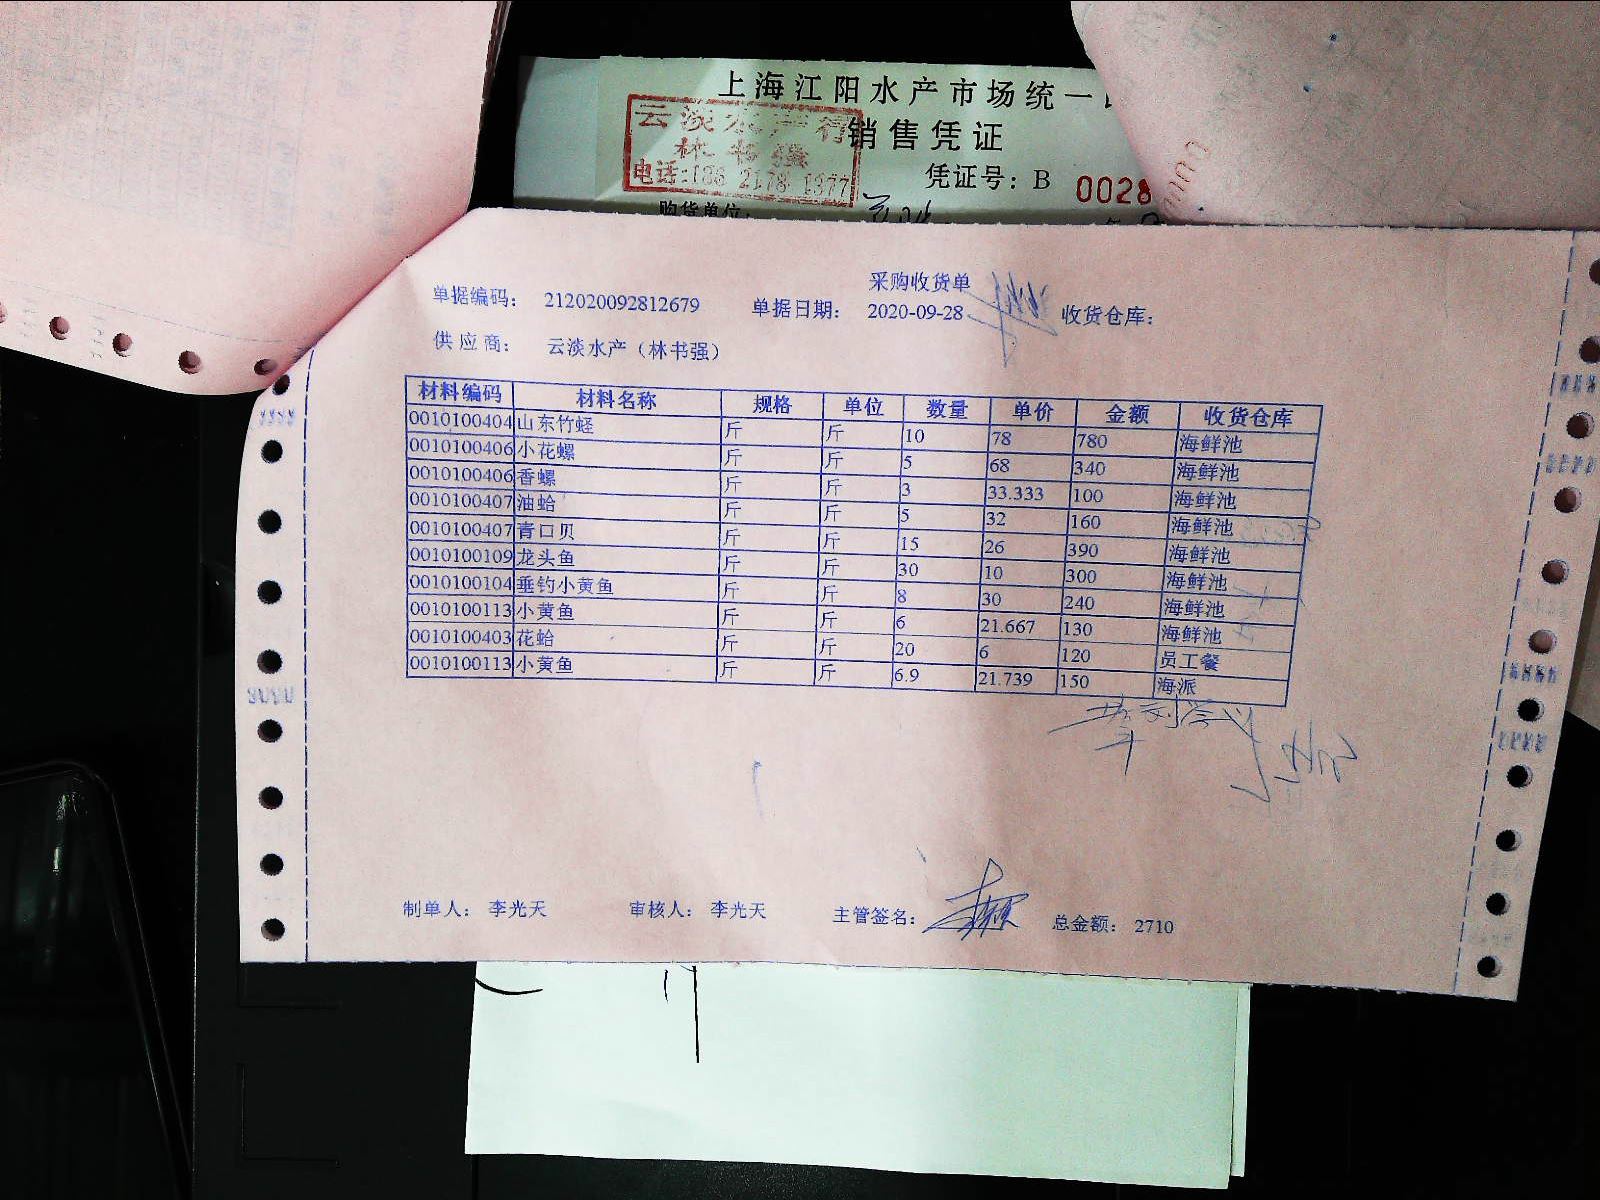 上海江阳水产市场统一
销售凭证
云淡水产行
林书强
电话:186 2178 1377
凭证号: B 0028
购货单位:
采购收货单
单据编码: 212020092812679 单据日期: 2020-09-28 收货仓库:
供应商: 云淡水产（林书强）
材料编码 材料名称 规格 单位 数量 单价 金额 收货仓库
0010100404 山东竹蛏 斤 斤 10 78 780 海鲜池
0010100406 小花螺 斤 斤 5 68 340 海鲜池
0010100406 香螺 斤 斤 3 33.333 100 海鲜池
0010100407 油蛤 斤 斤 5 32 160 海鲜池
0010100407 青口贝 斤 斤 15 26 390 海鲜池
0010100109 龙头鱼 斤 斤 30 10 300 海鲜池
0010100104 垂钓小黄鱼 斤 斤 8 30 240 海鲜池
0010100113 小黄鱼 斤 斤 6 21.667 130 海鲜池
0010100403 花蛤 斤 斤 20 6 120 员工餐
0010100113 小黄鱼 斤 斤 6.9 21.739 150 海派
制单人: 李光天 审核人: 李光天 主管签名: 总金额: 2710